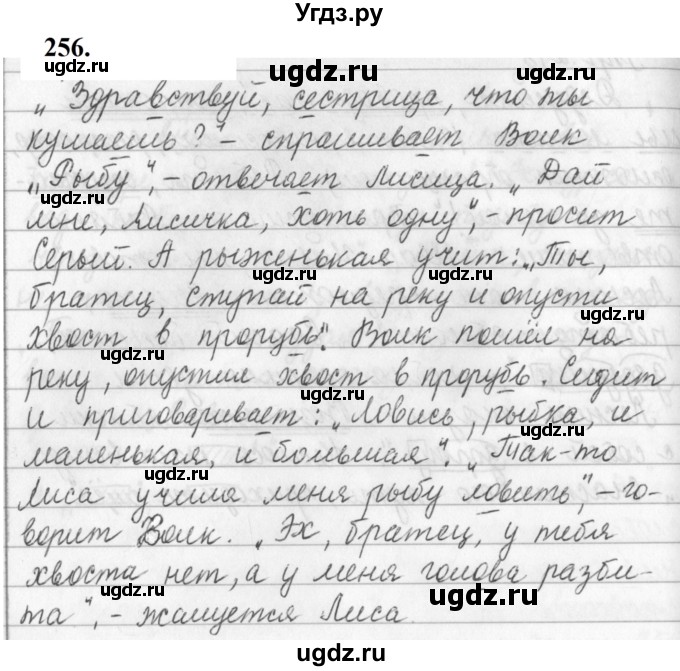 Угдз.ру
256.
ugdz.ru ugdz.ru
„Здравствуй, сестрица, что ты
ugdz.ru
кушаешь?" – спрашивает Волк
„Рыбу", – отвечает лисица. „Дай
ugdz.ru ugdz.ru
мне, Лисичка, хоть одну", – просит
Серый. А рыженькая учит: „Ты,
ugdz.ru
братец, ступай на реку и опусти
ugdz.ru
хвост в прорубь". Волк пошёл на
ugdz.ru
реку, опустил хвост в прорубь. Сидит
и приговаривает: „Ловись, рыбка, и
ugdz.ru
маленькая, и большая". „Так-то
ugdz.ru
Лиса учила меня рыбу ловить", – го-
ugdz.ru
ворит Волк. „Эх, братец, у тебя
ugdz.ru
хвоста нет, а у меня голова разби-
ugdz.ru
та", – жалуется Лиса.
ugdz.ru